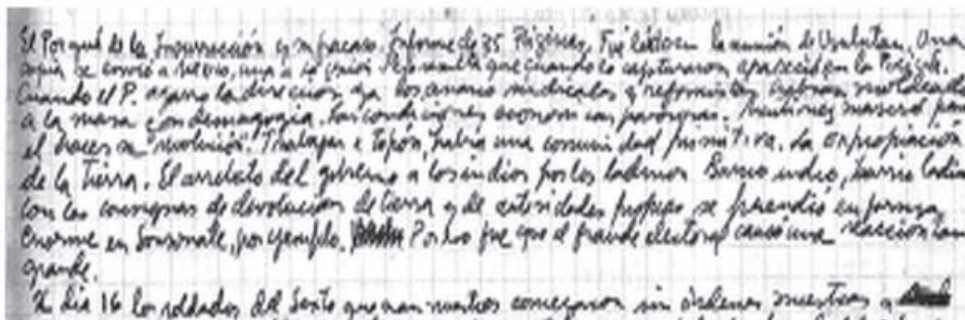 El Porqué de la Insurrección y su fracaso. Informe de 35 Páginas. Fue leído en la reunión de Usulután. Una
copia se envió a México, una a la Unión que cuando lo capturaron apareció en la Policía.
Cuando el P. agarró la dirección ya los anarco sindicalos y reformistas habían moldeado
a la masa con demagogia. Las condiciones económicas pavorosas. Martínez masacró para
el hacer su "revolución". Tnalapa e Topón, había una comunidad primitiva. La expropiación
de la Tierra. El arrebato del gobierno a los indios por los ladinos Barrio indio, barrio ladino
Con las consignas de devolución de tierra y de autoridades propias se prendió en forma
Enorme en Sonsonate, por ejemplo. Por eso fue que el fraude electoral causó una reacción tan
grande.
El día 16 los soldados del Sexto que eran nuestros comenzaron sin órdenes nuestras a